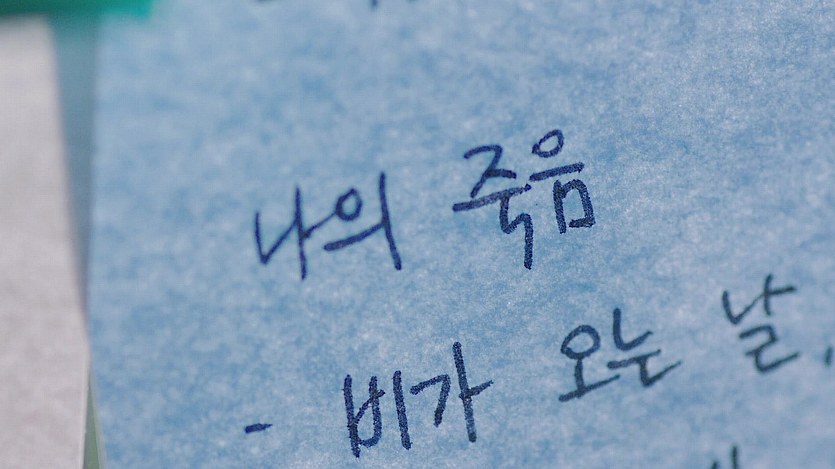 나의 죽음
- 비가 오는 날,